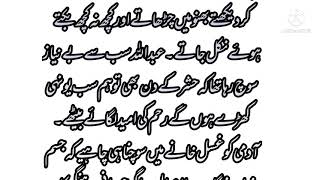 کر دیکھتے بھنویں چڑھاتے اور کچھ نہ کچھ بکتے
ہوئے نکل جاتے۔ عبداللہ سب سے بے نیاز
سوچ رہا تھا کہ حشر کے دن بھی تو ہم سب یونہی
کھڑے ہوں گے رحم کی امید لگائے بیٹھے۔
آدمی کو غسل خانے میں سوچنا ہی چاہیے کہ جسم